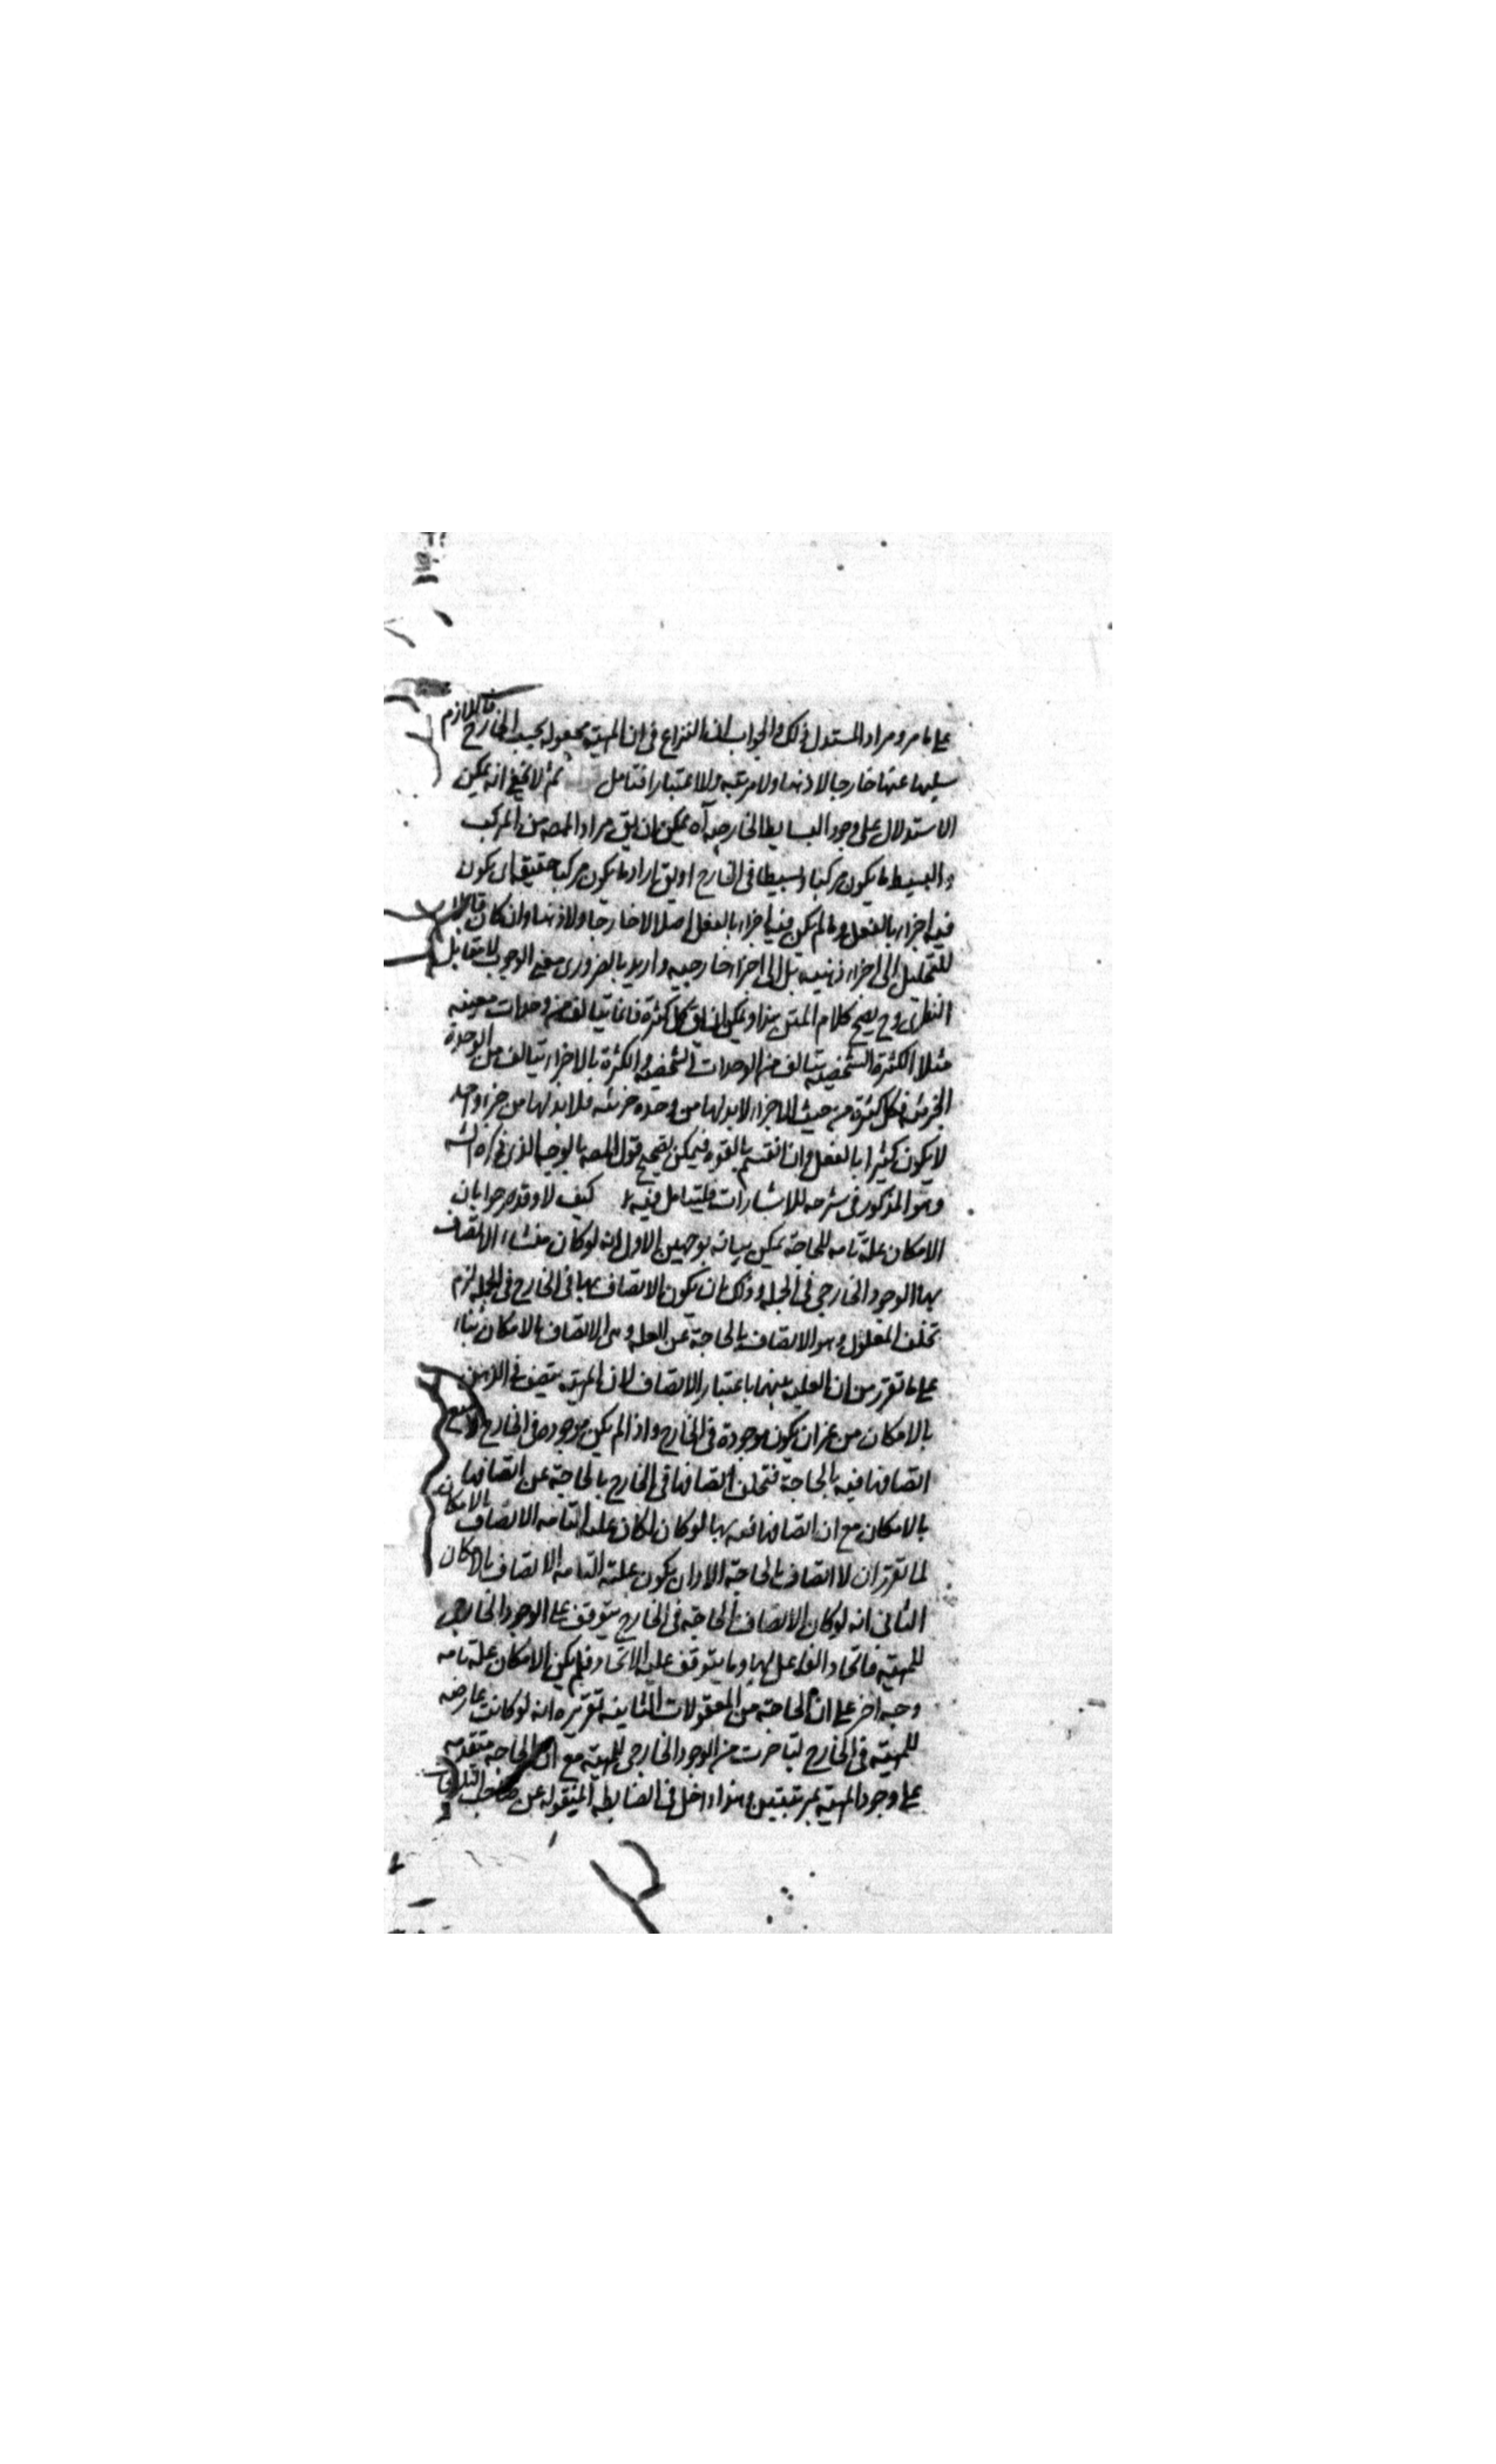 على ما مر ومراد المستدل ذلك والجواب ان النزاع فى ان المهية مجعوله بحسب الخارج فاللازم
سلبها عنها خارجا لا ذهنا ولا مرتبه ولا اعتبارا فتامل ثم لا يخفى انه يمكن
الاستدلال على وجود البسايط الخارجيه آه يمكن ان يق مراد المصه من المركب
والبسيط ما يكون مركبا وبسيطا فى الخارج او يق اراد ما يكون مركبا حقيقيا اى يكون
فيه اجزاء بالفعل وما لم يكن فيه اجزاء بالفعل اصلا لا خارجا ولا ذهنا وان كان قابلا
للتحليل الى اجزاء ذهنيه بل الى اجزاء خارجيه واريد بالضرورى معنى الوجوب لا مقابل
النظرى وح يصح كلام المتن هذا ويمكن ان يق كل كثرة فانما يتالف من وحدات معينه
مثلا الكثرة الشخصيه يتالف من الوحدات الشخصيه والكثرة بالاجزاء يتالف من الوحدة
الجزئيه فكل كثرة من حيث الاجزاء لا بد لها من وحده جزئيه فلا بد لها من جزء واحد
لا يكون كثيرا بالفعل وان انقسم بالقوه فيمكن تصحيح قول المصه بالوجه الذى ذكره الشه
وهو المذكور فى شرحه للاشارات فليتامل فيه كيف لا وقد مر جوابان
الامكان علة تامه للحاجة يمكن بيانه بوجهين الاول انه لو كان منشاء الاتصاف
بها الوجود الخارجى فى الجمله وذلك بان يكون الاتصاف بها فى الخارج فى الجمله لزم
تخلف المعلول وهو الاتصاف بالحاجة عن العله وهى الاتصاف بالامكان بناء
على ما تقرر من ان العليه بينهما باعتبار الاتصاف لان المهيه يتصف فى الذهن
بالامكان من غير ان يكون موجودة فى الخارج واذا لم يكن موجوده فى الخارج لامتنع
اتصافها فيه بالحاجة فتخلف اتصافها فى الخارج بالحاجة عن اتصافها
بالامكان مع ان اتصافها فيه بها لو كان لكان علته التامه الاتصاف بالامكان
لما تقرر ان لا اتصاف بالحاجة الا وان يكون علته التامه الاتصاف بالامكان
الثانى انه لو كان الاتصاف بالحاجه فى الخارج يتوقف على الوجود الخارجى
للمهيه فاتحاد الفاعل لها وما يتوقف عليه الاتحاد فلم يكن الامكان علة تامه
وجه اخر على ان الحاجة من المعقولات الثانيه تقريره انه لو كانت عارضه
للمهيه فى الخارج لتاخرت من الوجود الخارجى للمهيه مع ان الحاجه متقدمه
على وجود المهيه بمرتبتين وهذا داخل فى الضابطه المنقوله عن صاحب